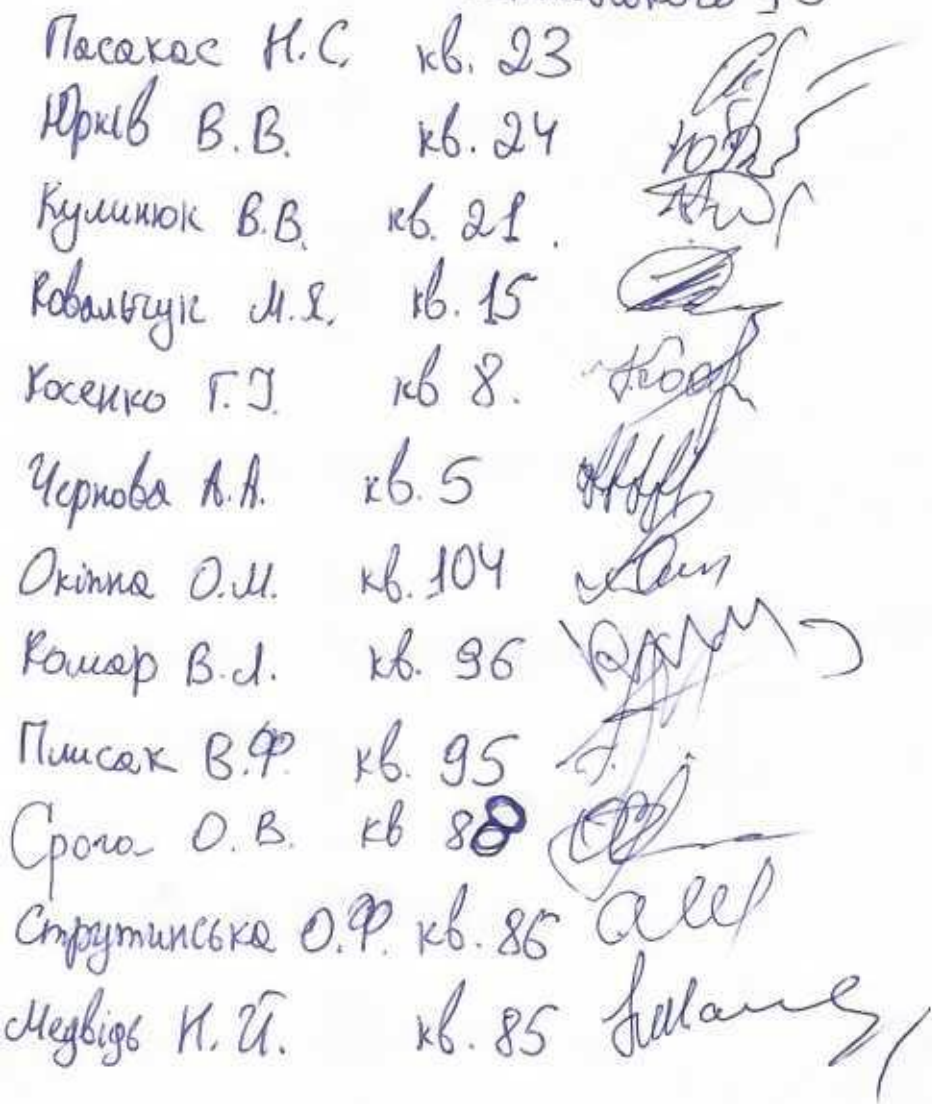 Пасакас Н.С. кв. 23
Юрків В.В. кв. 24
Кулинюк В.В. кв. 21.
Ковальчук М.Я. кв. 15
Косенко Г.І. кв 8.
Чернова А.А. кв. 5
Окіпна О.М. кв. 104
Комар В.Л. кв. 96
Плисак В.Ф. кв. 95
Срога О.В. кв 88
Струтинська О.Ф. кв. 86
Медвідь Н.Й. кв. 85